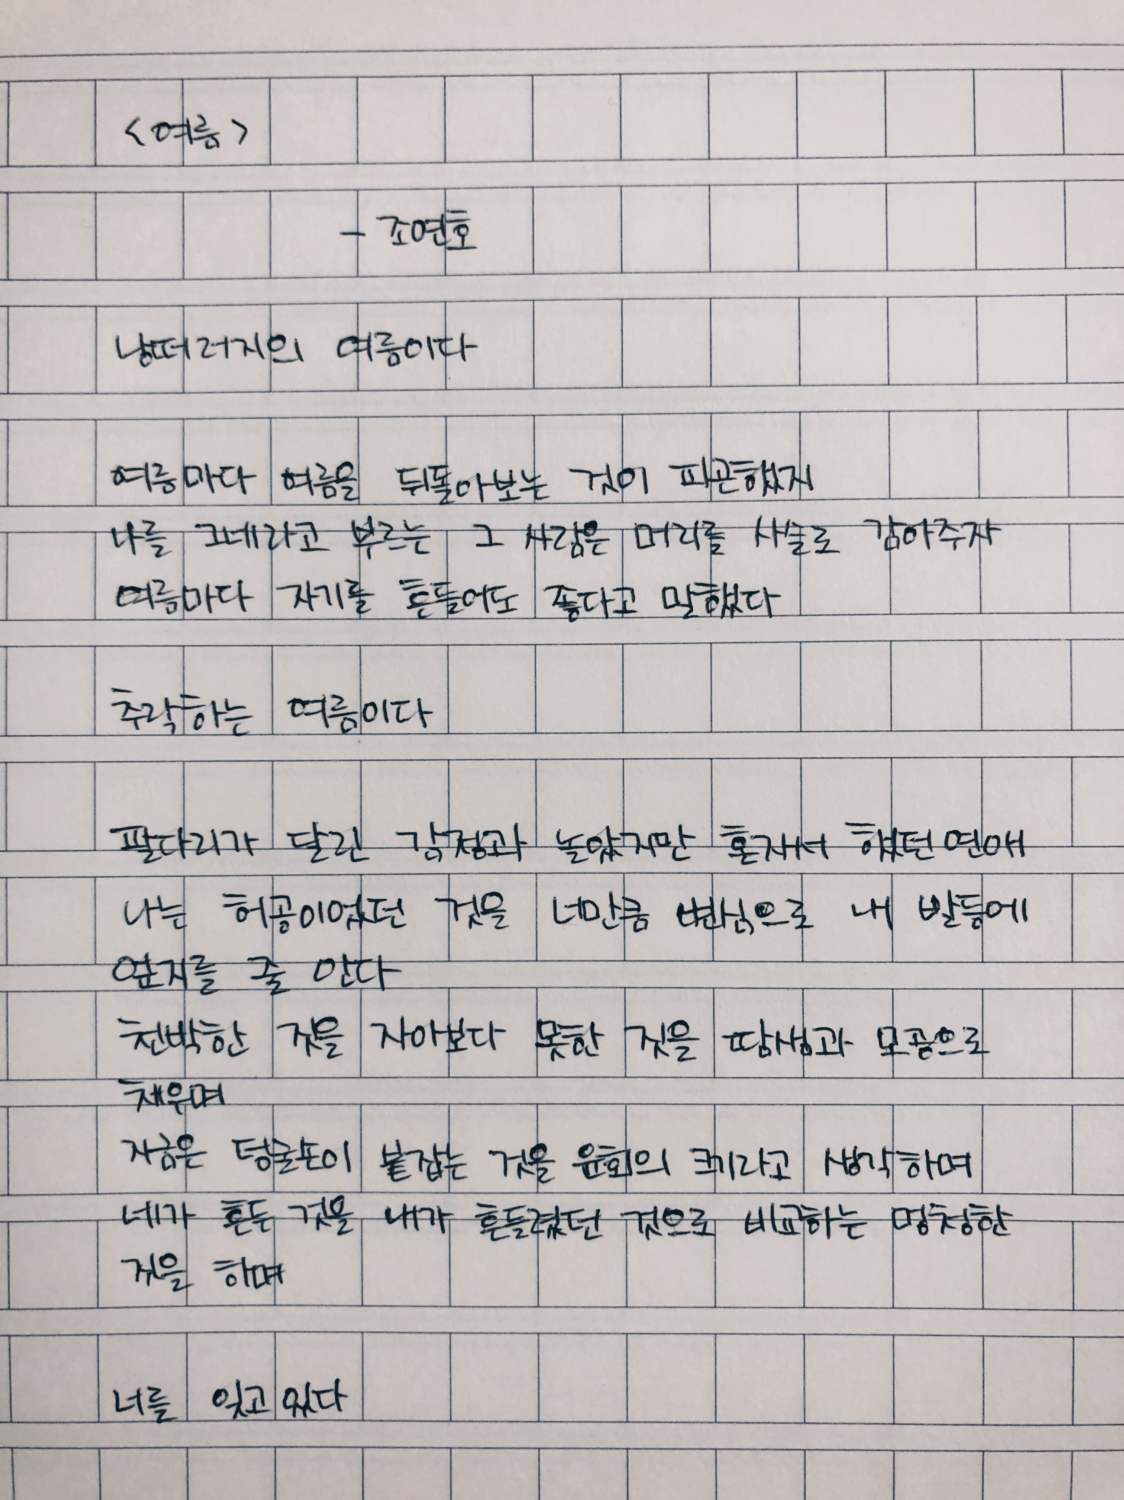 <여름>
- 조연호
낭떠러지의 여름이다
여름마다 여름을 뒤돌아보는 것이 피곤했지
나를 그네라고 부르는 그 사람은 머리를 사슬로 감아주자
여름마다 자기를 흔들어도 좋다고 말했다
추락하는 여름이다
팔다리가 달린 감정과 놀았지만 혼자서 했던 연애
나는 허공이었던 것을 너만큼 변심으로 내 발등에
얹지를 줄 안다
천박한 것을 자아보다 못한 것을 땀샘과 모공으로
채우며
지금은 덩굴손이 붙잡는 것을 윤회의 크기라고 생각하며
네가 흔든 것을 내가 흔들렸던 것으로 비교하는 멍청한
것을 하며
너를 잊고 있다